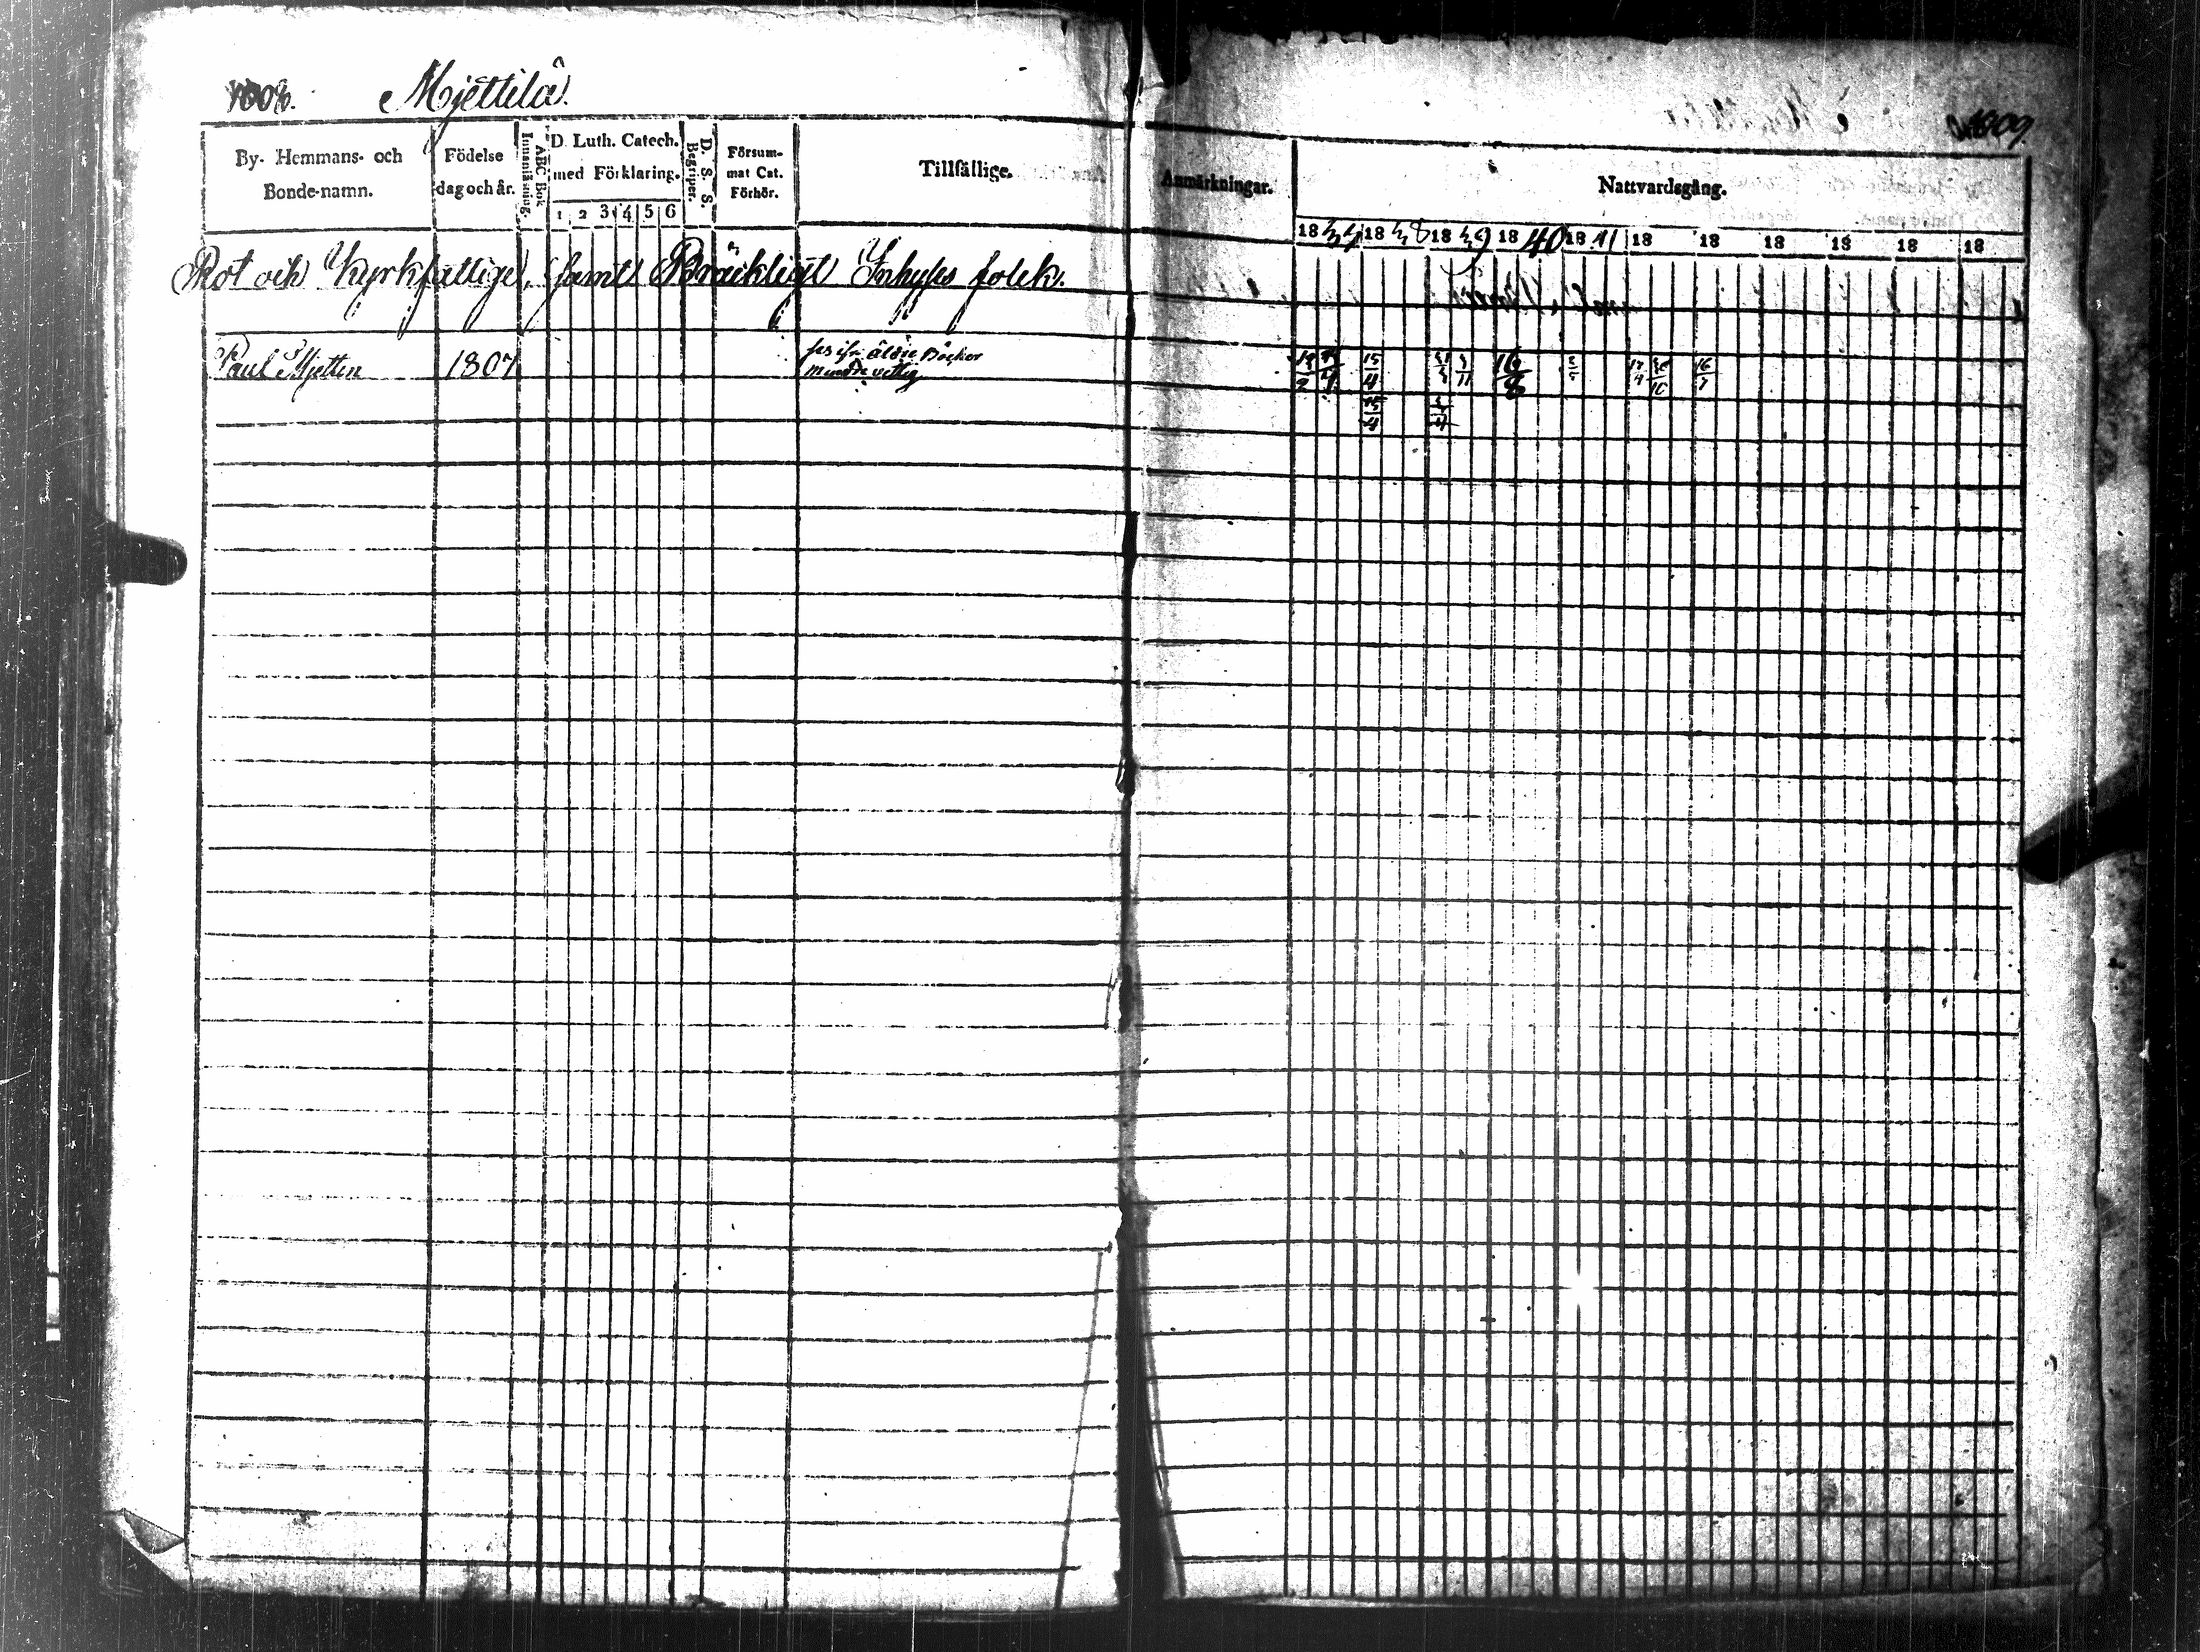 1008. Mjettilä.
1009.
By- Hemmans- och Bonde-namn.
Födelse dag och år.
ABC Bok Innanläsning.
D. Luth. Catech. med Förklaring.
1 2 3 4 5 6
D. S. S. Begriper.
Försum- mat Cat. Förhör.
Tillfällige.
Anmärkningar.
Nattvardsgång.
1837 1838 1839 1840 1841 18 18 18 18 18 18
Rot och Kyrkfattige, samt Bräckligt Inhyses folck.
Paul Mjettin 1807
äldre Böcker
mindre vettig
15/4 16/8 16/7
15/4